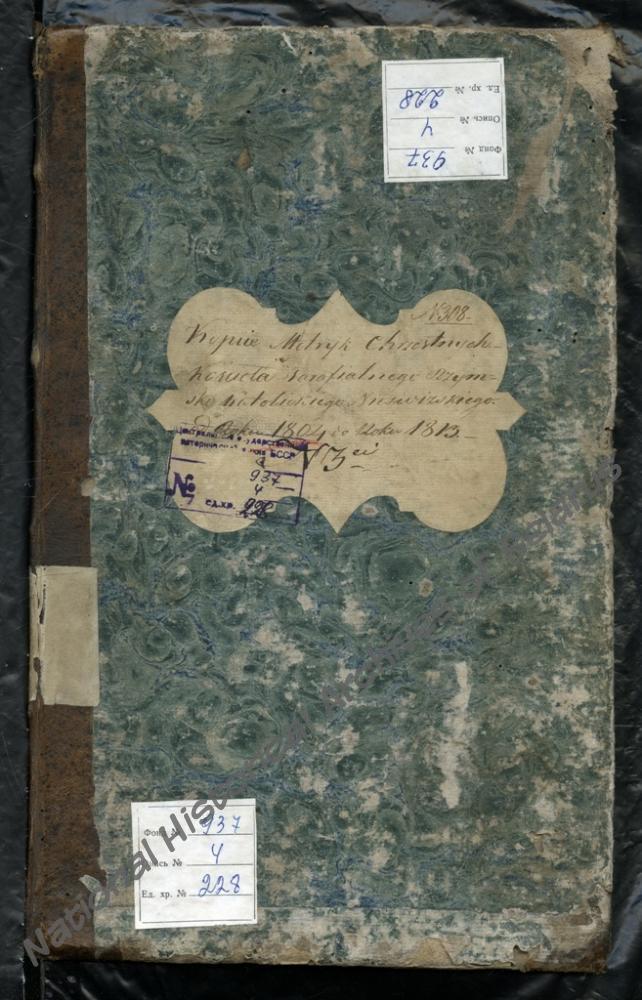 Фонд № 937
Опись № 4
Ед. хр. № 228
N308.
Kopije Metryk Chrzestnych
Kościoła Parafialnego Rzym-
sko Katolickiego Nieświżskiego
Od Roku 1804 do Roku 1813.
N 3ci
Центральный государственный
исторический архив БССР
Ф. 937
4
№
ед.хр. 228
Фонд № 937
Опись № 4
Ед. хр. № 228
National Historical Archives of Belarus